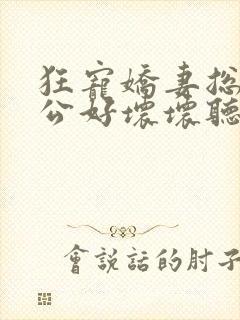 狂寵嬌妻總
公好壞壞聽
會說話的肘子